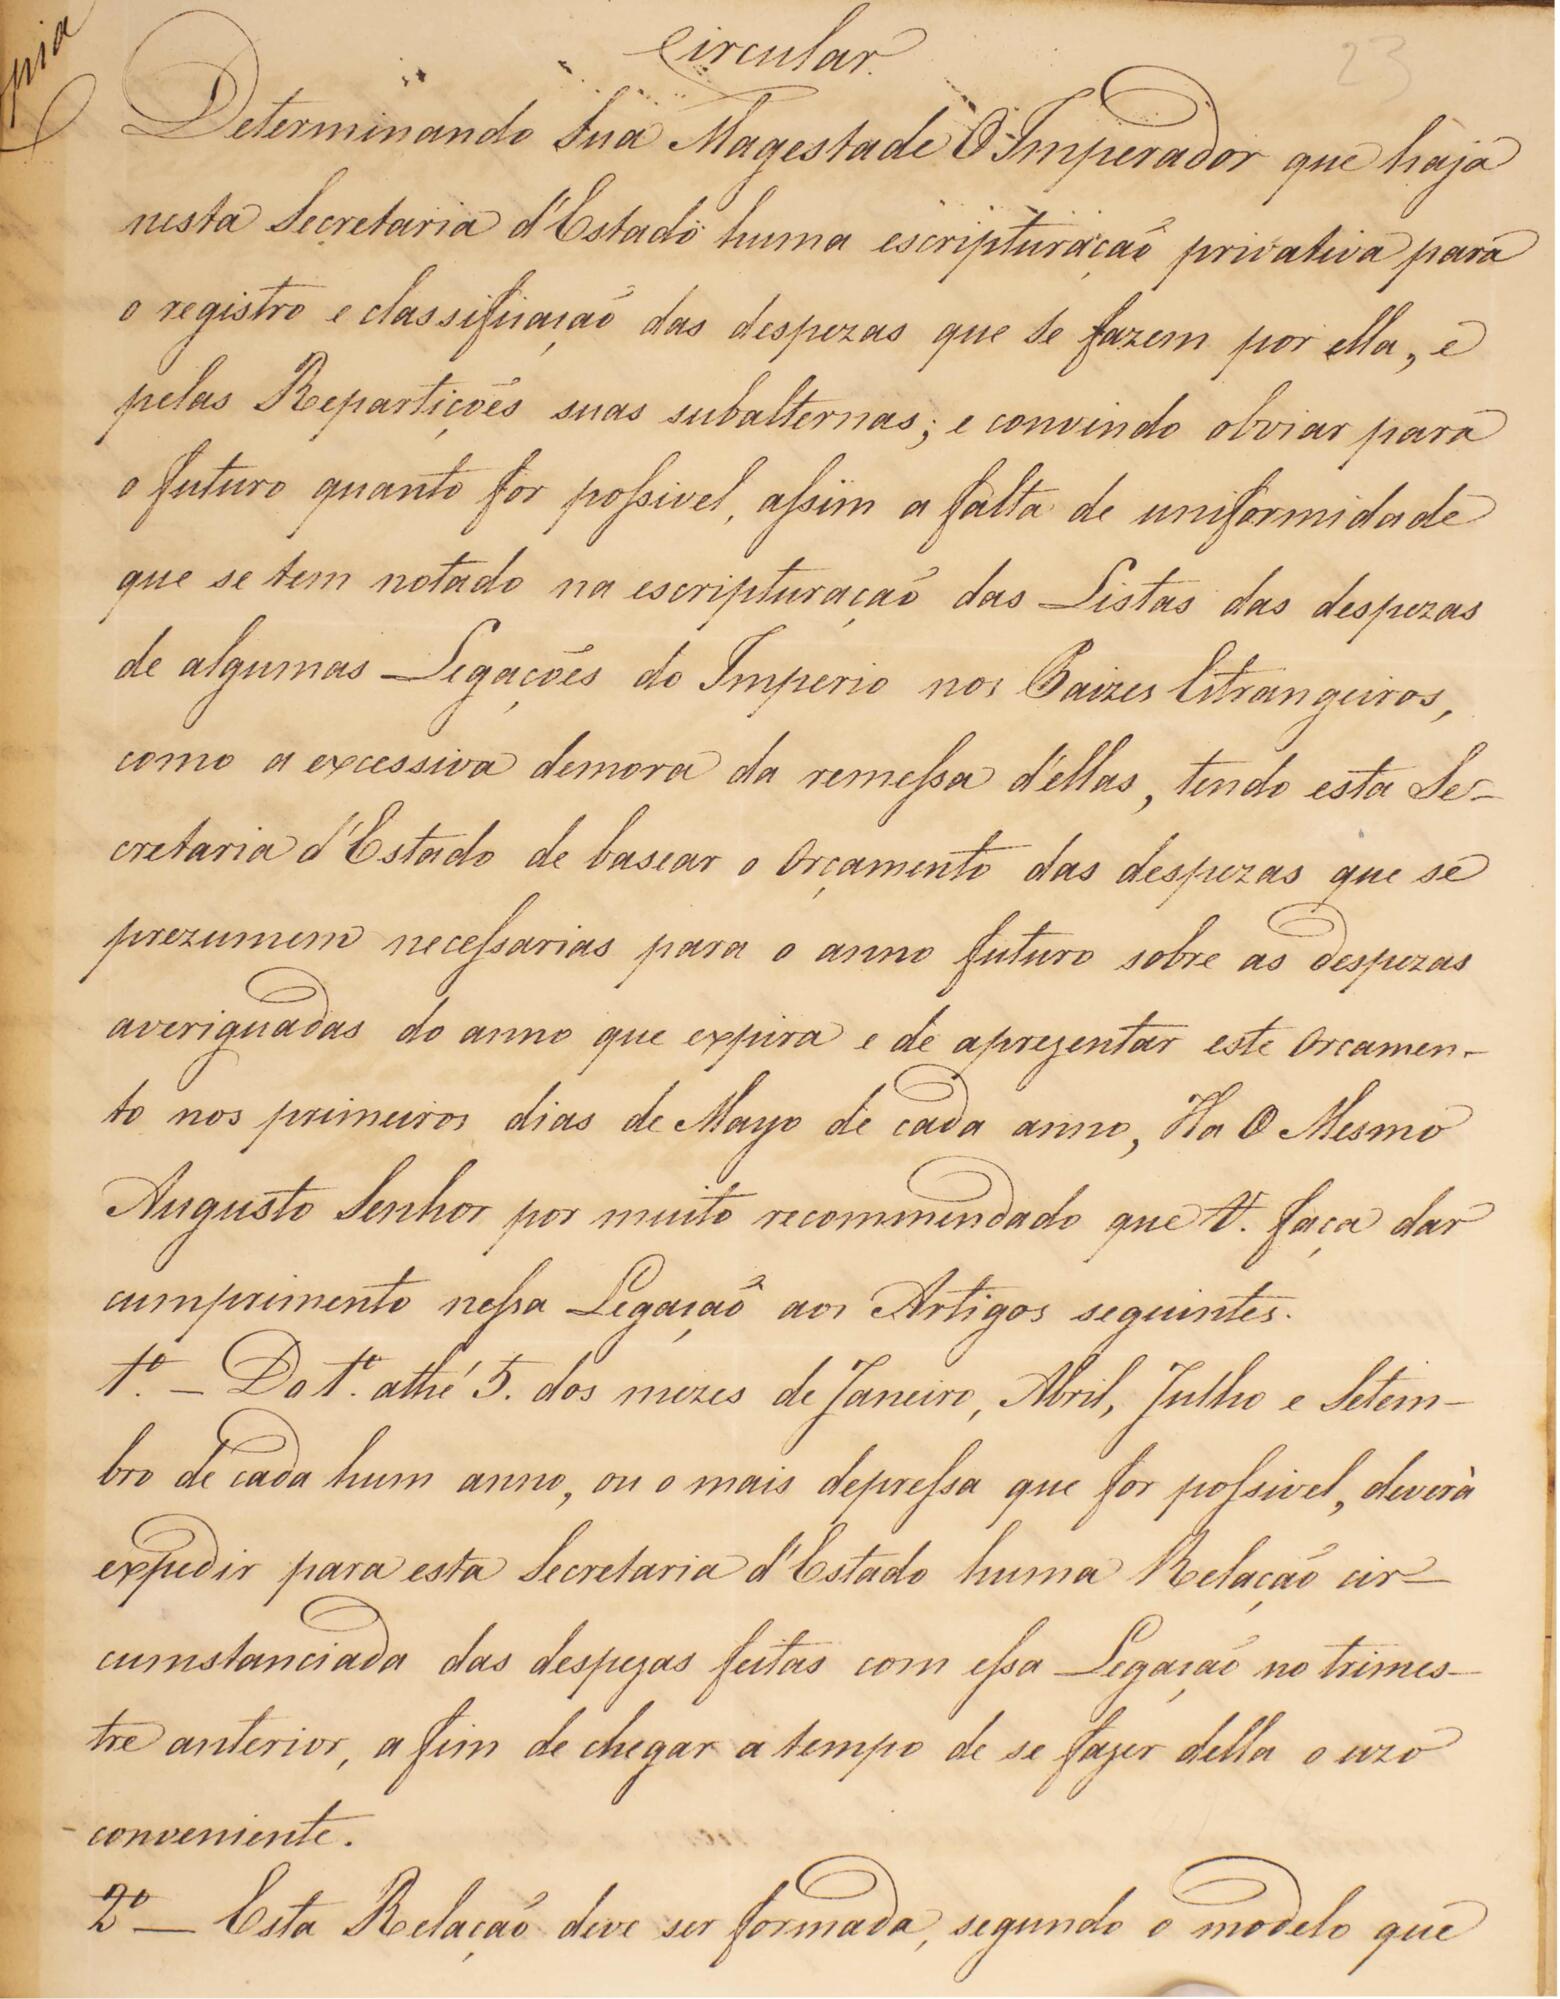 pia
Circular.
23
Determinando Sua Magestade O Imperador que haja
nesta Secretaria d'Estado huma escripturação privativa para
o registro e classificação das despezas que se fazem por ella, e
pelas Repartições suas subalternas; e convindo obviar para
o futuro quanto for possivel, assim a falta de uniformidade
que se tem notado na escripturação das Listas das despezas
de algumas Legações do Imperio nos Paizes Estrangeiros,
como a excessiva demora da remessa d'ellas, tendo esta Se-
cretaria d'Estado de basear o Orçamento das despezas que se
prezumem necessarias para o anno futuro sobre as despezas
averiguadas do anno que expira e de aprezentar este Orcamen-
to nos primeiros dias de Mayo de cada anno, Ha O Mesmo
Augusto Senhor por muito recommendado que V. faça dar
cumprimento nessa Legação aos Artigos seguintes.
1º. — Do 1º. athé 5. dos mezes de Janeiro, Abril, Julho e Setem-
bro de cada hum anno, ou o mais depressa que for possivel, deverà
expedir para esta Secretaria d'Estado huma Relação cir-
cumstanciada das despezas feitas com essa Legação no trimes-
tre anterior, a fim de chegar a tempo de se fazer della o uzo
conveniente.
2º — Esta Relação deve ser formada, segundo o modelo que